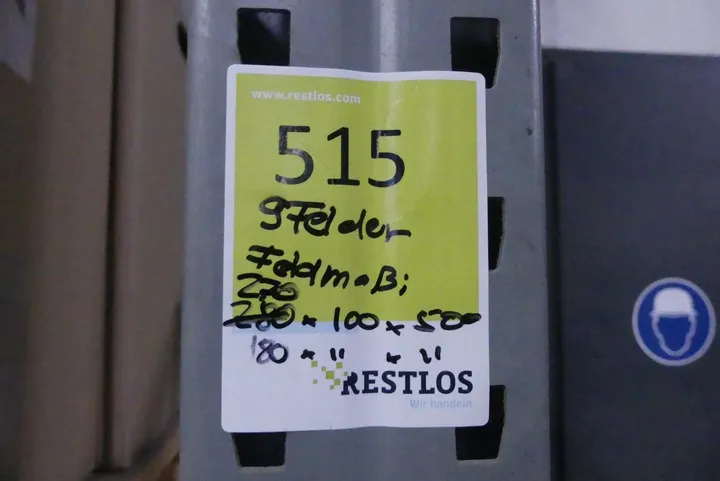 www.restlos.com
515
9 Felder
Feldmaß;
270
280 × 100 × 500
180 × " × "
RESTLOS
Wir handeln